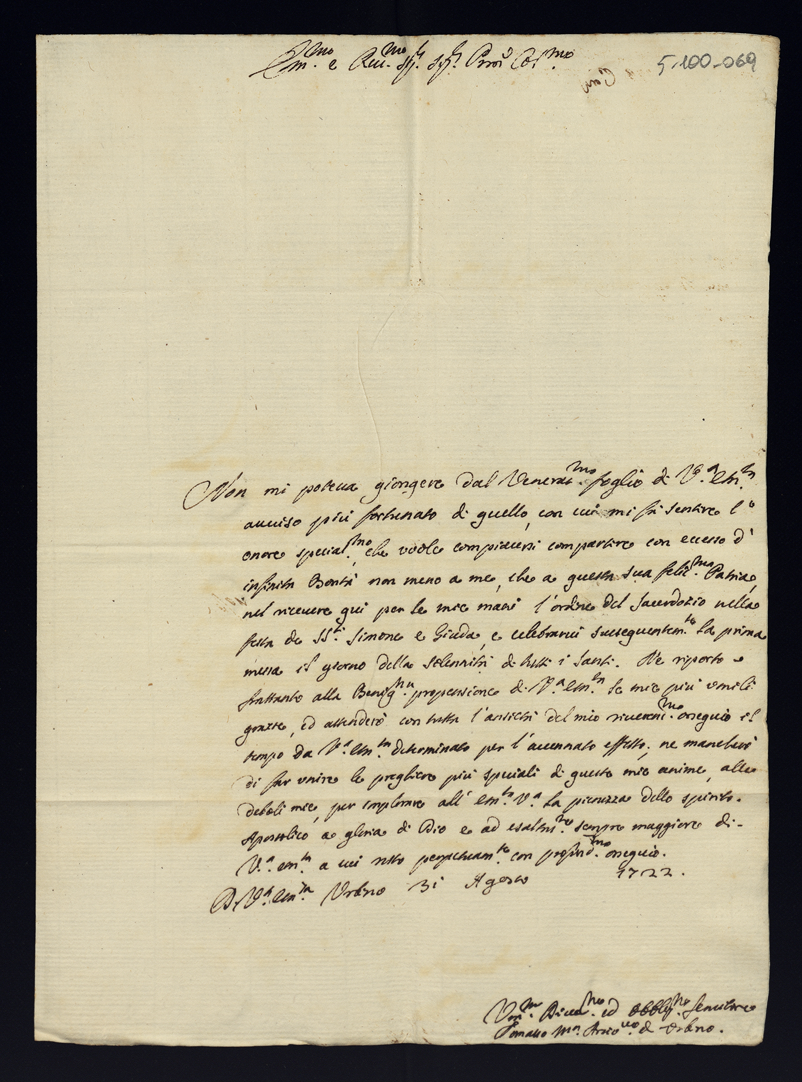 Em.mo e Rev.mo Sig.r Sig.r Pron Col.mo
5-100-069
Non mi poteva giongere dal Venerat.mo foglio di V.a Em.za
avviso più fortunato di quello, con cui mi fà sentire l'
onore special.mo, che vuole compiacersi compartire con eccesso d'
infinita Bontà non meno a me, che a questa sua felic.ma Patria,
nel ricevere qui per le mie mani l'ordine del Sacerdozio nella
festa de SS.ti Simone e Giuda, e celebrarvi susseguentem.te la prima
messa il giorno della solennità di tutti i Santi. Ne riporto
frattanto alla Benig.ma propensione di V.a Em.za le mie più umili
grazie, ed attenderò con tutta l'ansietà del mio riverent.mo ossequio il
tempo da V.a Em.za determinato per l'accennato effetto; ne mancherò
di far unire le preghiere più speciali di queste mie anime, alle
deboli mie, per implorare all' Em.za V.a la pienezza dello spirito
Apostolico a gloria di Dio e ad esaltaz.ne sempre maggiore di
V.a Em.za a cui resto perpetuam.te con profond.mo ossequio.
Di V.a Em.za Urbino 31 Agosto 1722.
Um.mo Divot.mo ed Obblig.mo Servitore
Tomaso M.a Arciv.vo di Urbino.